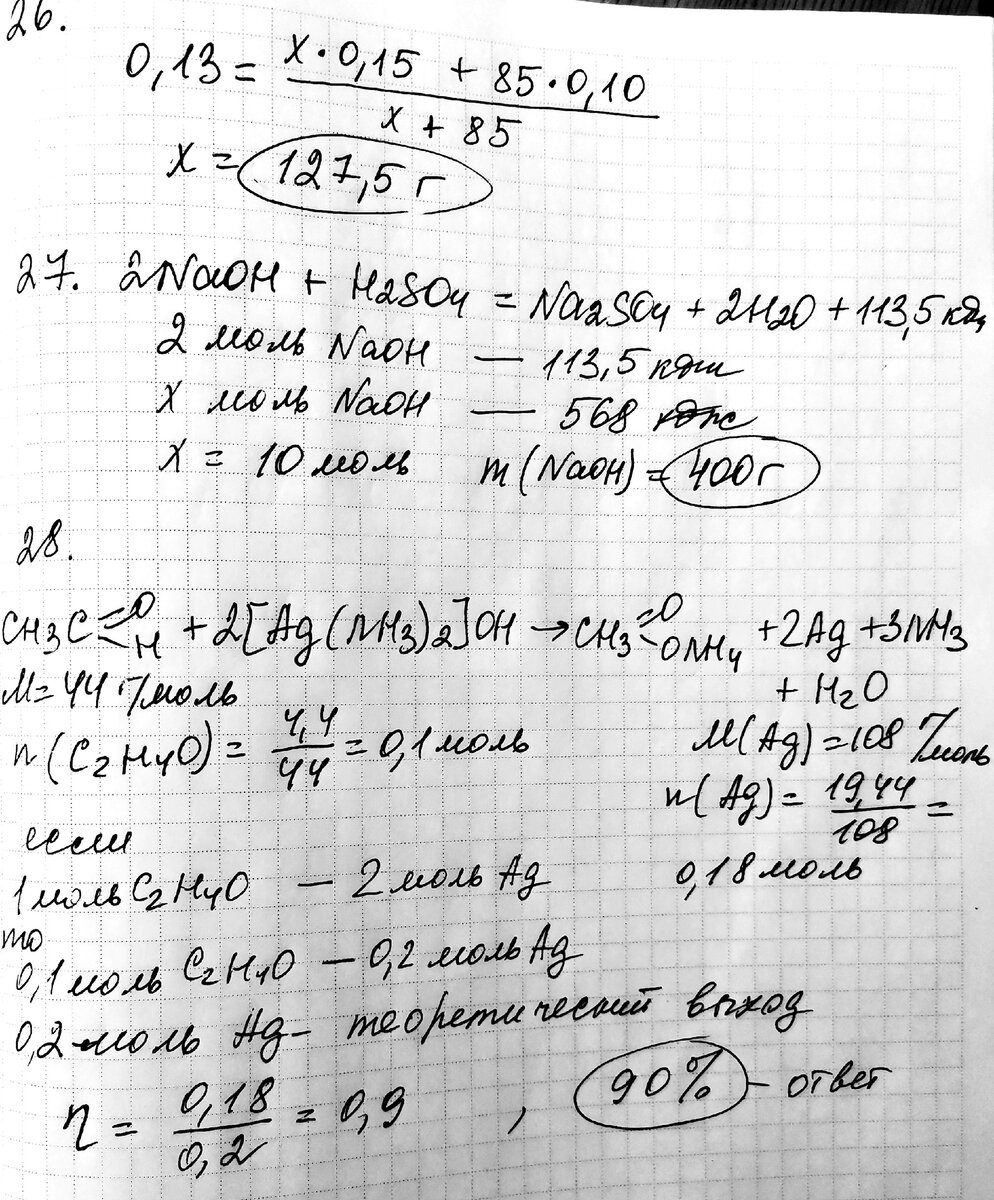 26.
0,13 = (x·0,15 + 85·0,10) / (x + 85)
x = 127,5 г
27. 2NaOH + H2SO4 = Na2SO4 + 2H2O + 113,5 кДж
2 моль NaOH — 113,5 кДж
x моль NaOH — 568 кДж
x = 10 моль m(NaOH) = 400г
28.
CH3C=O-H + 2[Ag(NH3)2]OH → CH3=O-ONH4 + 2Ag + 3NH3
+ H2O
M = 44 г/моль
n(C2H4O) = 4,4/44 = 0,1 моль
M(Ag) = 108 г/моль
n(Ag) = 19,44/108 =
0,18 моль
если
1 моль C2H4O — 2 моль Ag
то
0,1 моль C2H4O — 0,2 моль Ag
0,2 моль Ag - теоретический выход
η = 0,18/0,2 = 0,9 , 90% - ответ